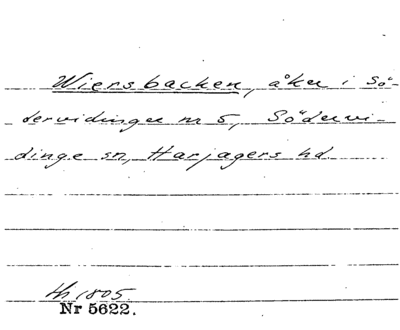 Wiersbacken, åker i Sö-
dervidinge nr 5, Södervi-
dinge sn, Harjagers hd
th 1805
Nr 5622.